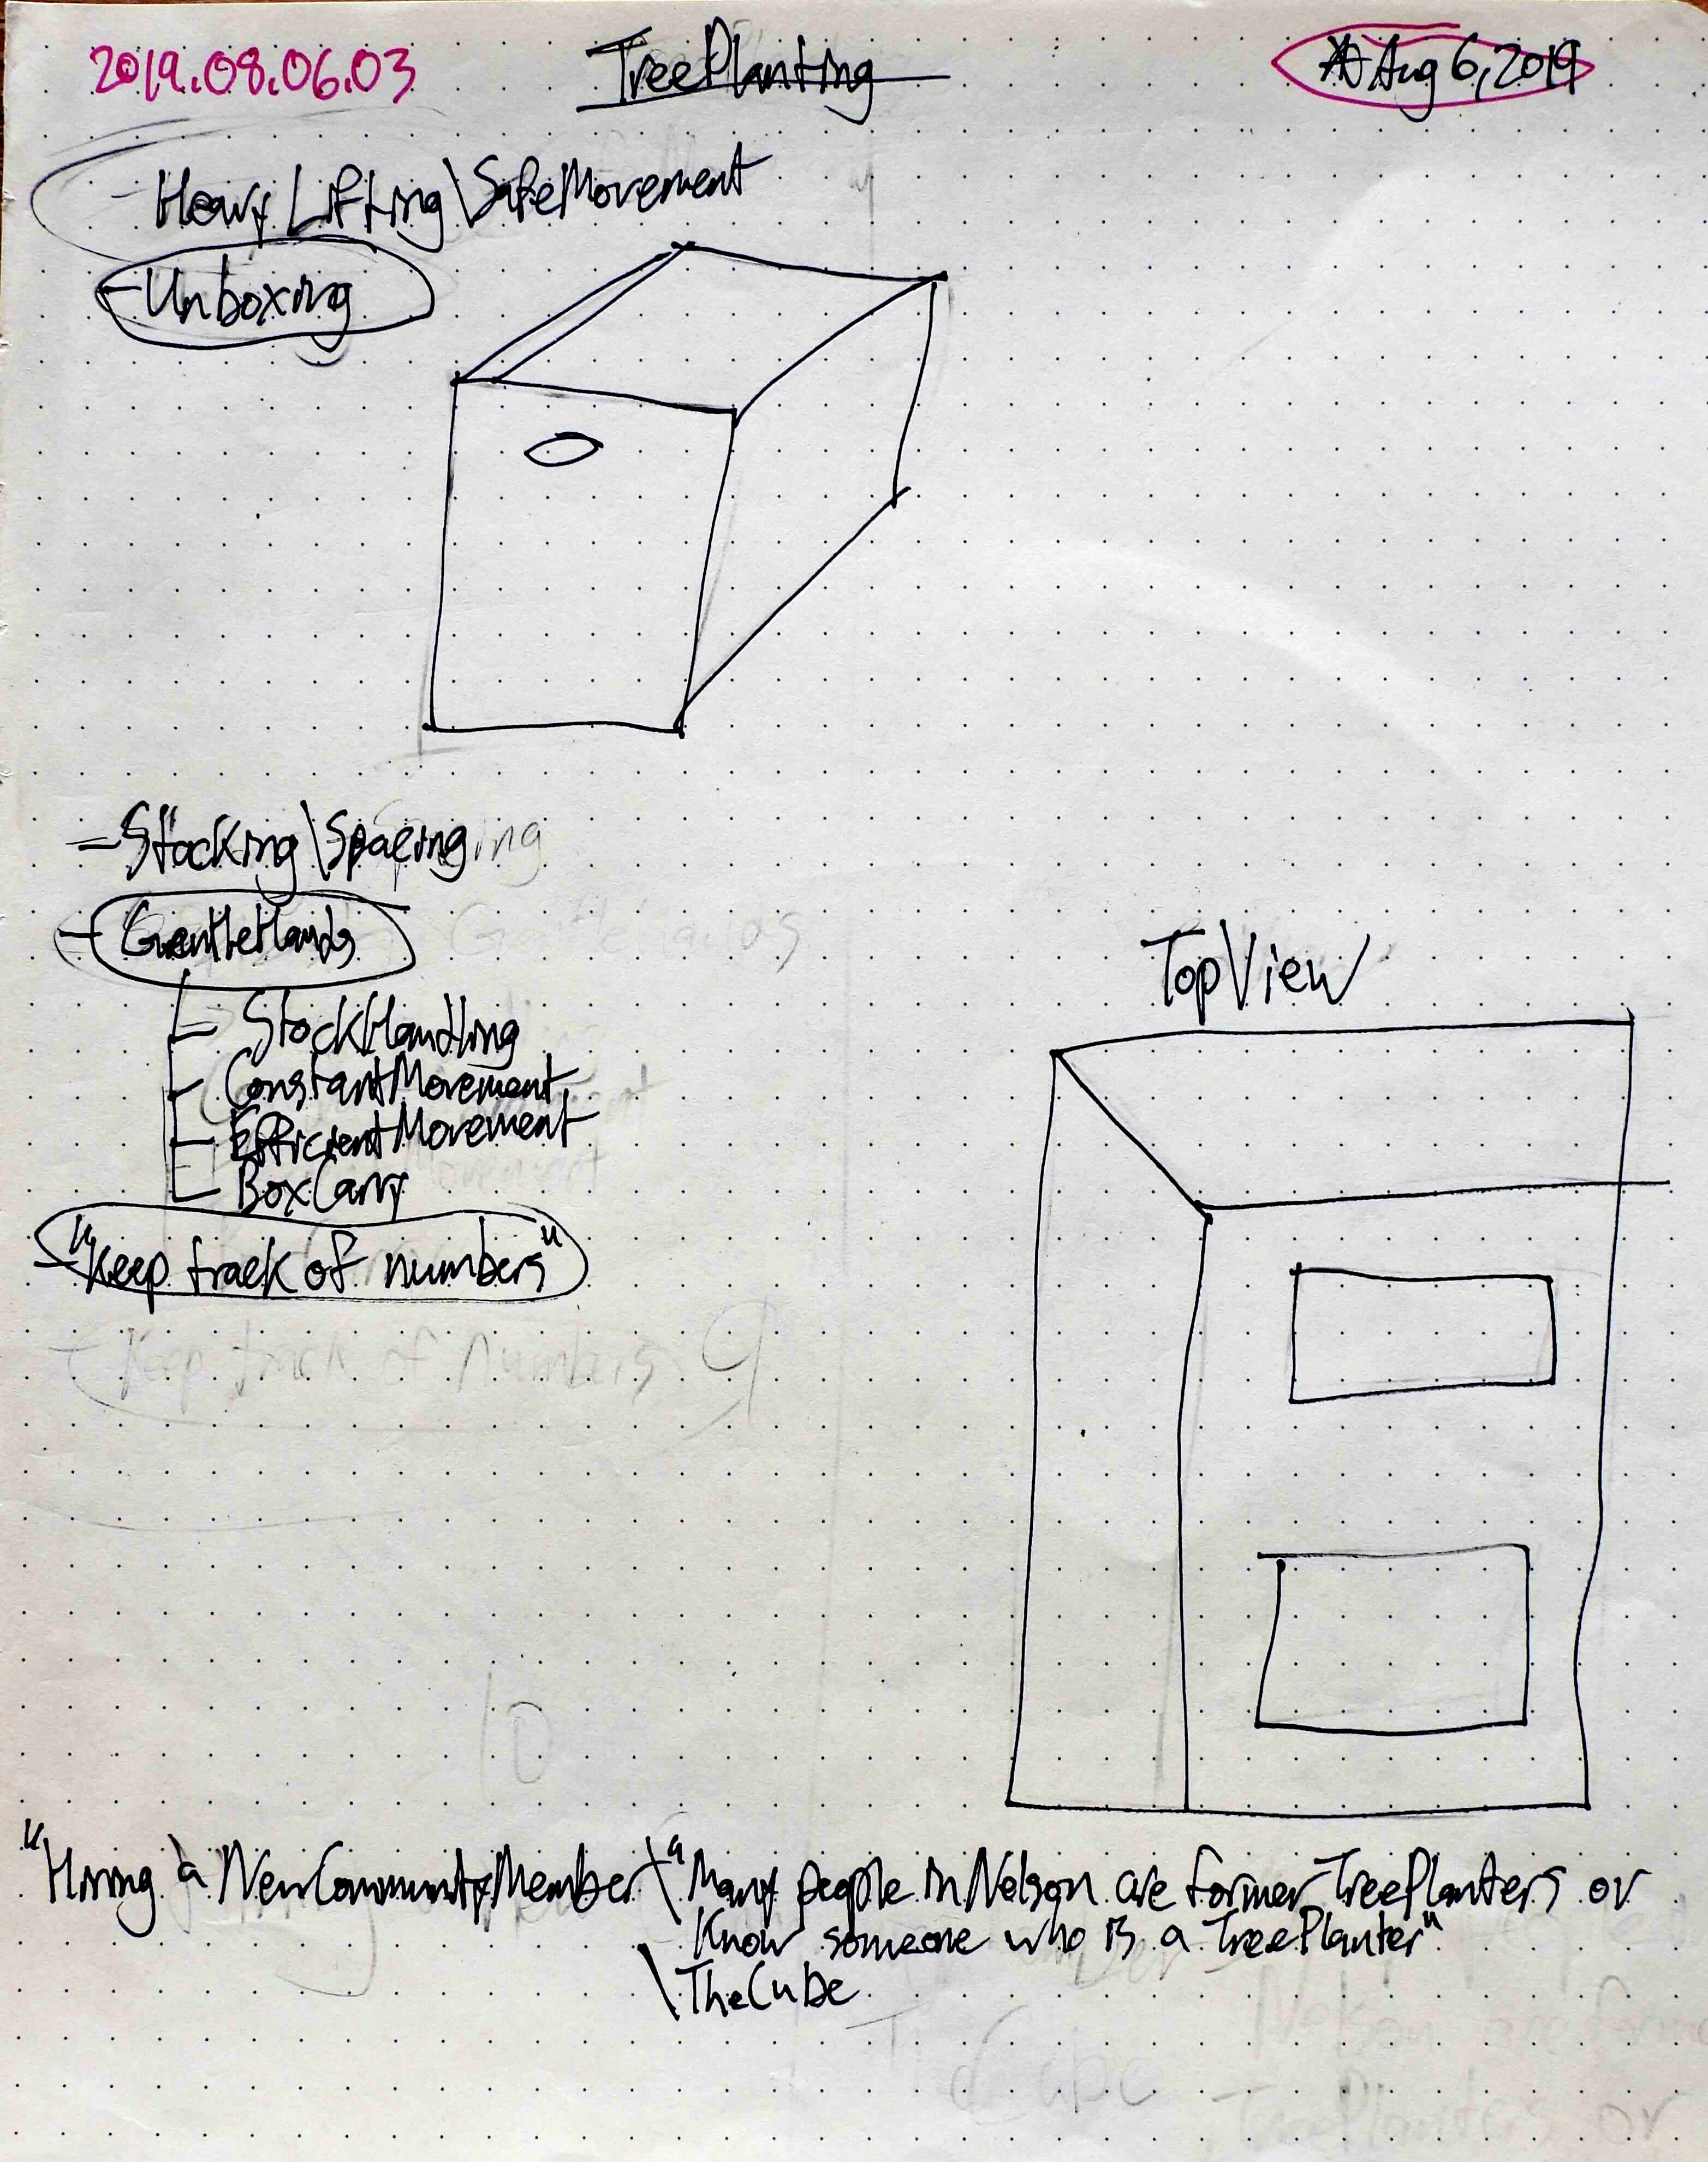 2019.08.06.03
TreePlanting
Aug 6, 2019
- Heavy Lifting\SafeMovement
- Unboxing
- Stocking\Spacing
- GentleHands
StockHandling
ConstantMovement
EfficientMovement
BoxCarry
- "Keep track of numbers"
Keep track of Numbers
TopView
"Hiring a NewCommunityMember \ "Many people in Nelson are former TreePlanters or
Know someone who is a TreePlanter"
\ TheCube